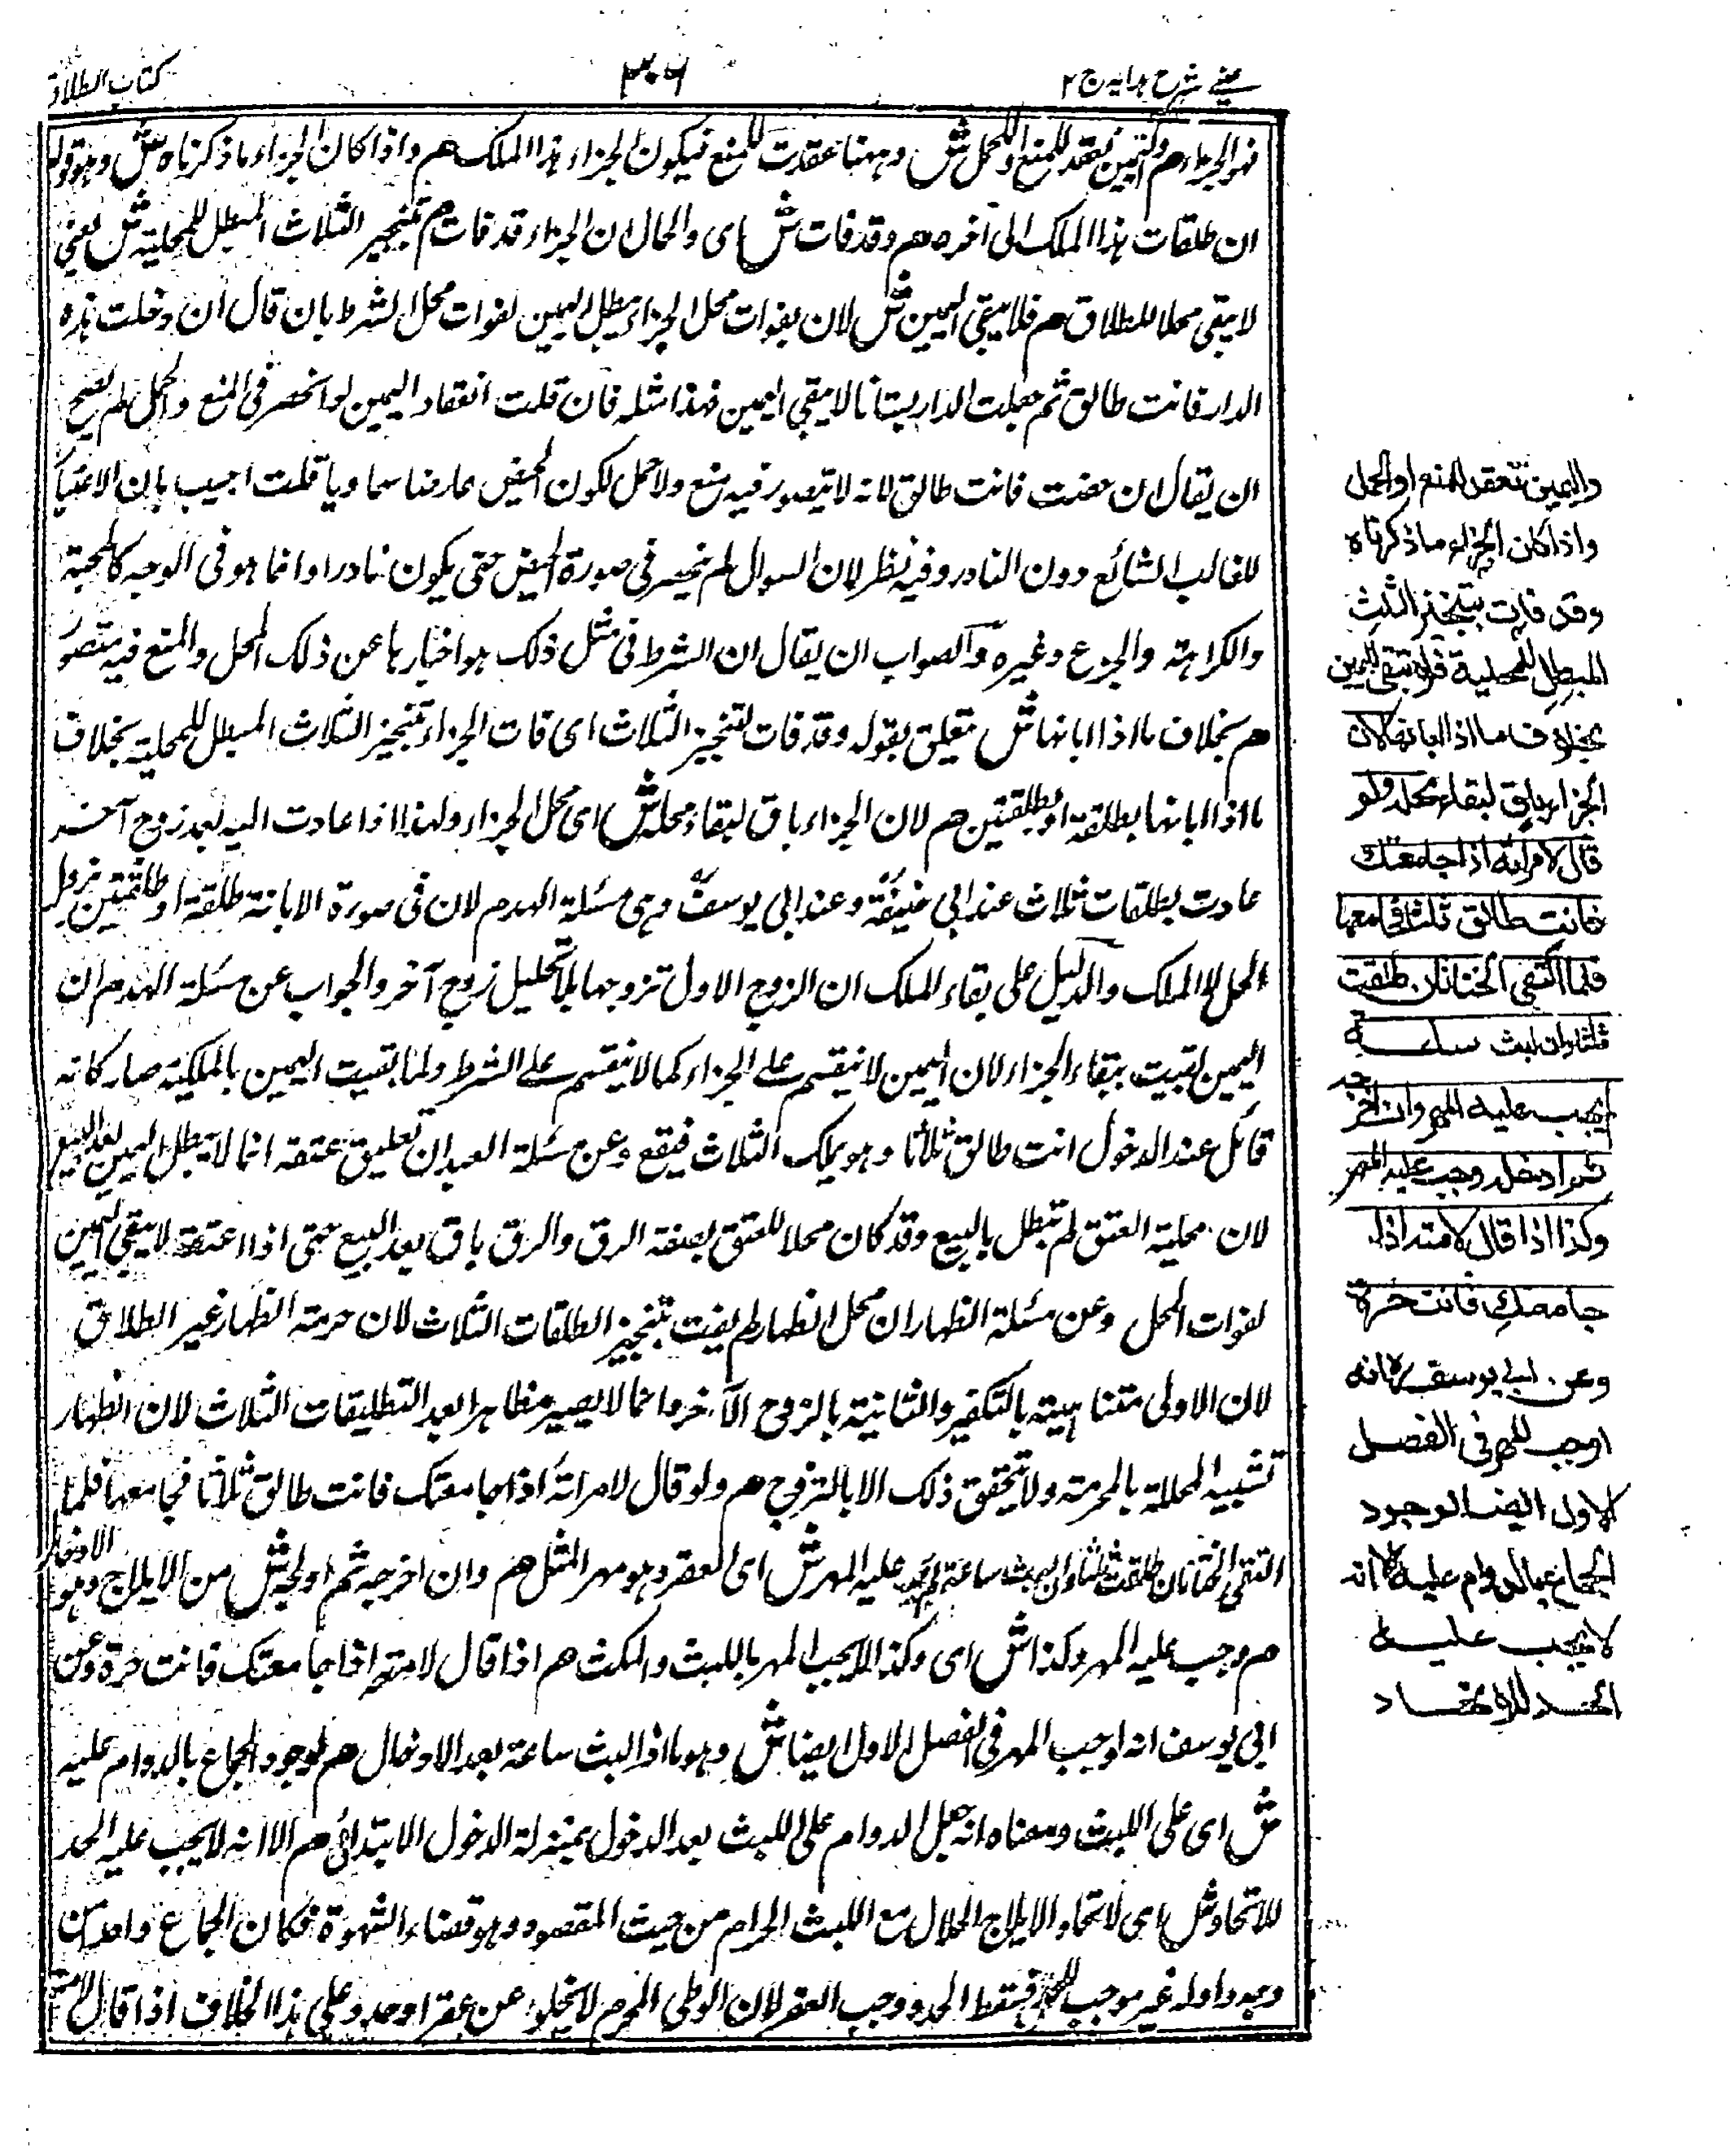 عينى شرح هدايه ج ٢
٣٠٦
كتاب الطلاق
فهو الجزاء هم واليمين تعقد للمنع او للحمل ش وههنا عقدت للمنع فيكون الجزاء هذا الملك هم واذا كان الجزاء ما ذكرناه ش وهو قوله
ان طلقات هذا الملك الى آخره هم وقد فات ش اى والحال ان الجزاء قد فات هم بتنجيز الثلاث المبطل للمحلية ش يعنى
لا يبقى محلا للطلاق هم فلا يبقى اليمين ش لان بفوات محل الجزاء يبطل اليمين لفوات محل الشرط بان قال ان دخلت هذه
الدار فانت طالق ثم جعلت الدار بستانا لا يبقى اليمين فهذا مثله فان قلت انعقاد اليمين لو انحصر فى المنع والحمل لم يصح
ان يقال ان حضت فانت طالق لانه لا يتصور فيه منع ولا حمل لكون الحيض عارضا سماويا قلت اجيب بان الاعتبا
للغالب الشائع دون النادر وفيه نظر لان السوال لم ينحصر فى صورة الحيض حتى يكون نادرا وانما هو فى الوجه كالمحبة
والكراهة والجزع وغيره والصواب ان يقال ان الشرط فى مثل ذلك هو اخبارها عن ذلك الحمل والمنع فيه متصور
هم بخلاف ما اذا ابانها ش متعلق بقوله وقد فات لتنجيز الثلاث اى فات الجزاء بتنجيز الثلاث المبطل للمحلية بخلاف
ما اذا ابانها بطلقة او بطلقتين هم لان الجزاء باق لبقاء محله ش اى محل الجزاء ولهذا اذا عادت اليه بعد زوج آخر
عادت بطلقات ثلاث عند ابى حنيفة وعند ابى يوسف وهى مسئلة الهدم لان فى صورة الابانة طلقة او طلقتين يزول
الحل لا الملك والدليل على بقاء الملك ان الزوج الاول تزوجها بلا تحليل زوج آخر والجواب عن مسئلة الهدم ان
اليمين بقيت ببقاء الجزاء لان اليمين لا ينقسم على الجزاء كما لا ينقسم على الشرط ولما بقيت اليمين بالملكية صار كانه
قائل عند الدخول انت طالق ثلاثا وهو يملك الثلاث فيقع وعن مسئلة العبد ان تعليق عتقه انما لا يبطل اليمين بعد البيع
لان محلية العتق لم تبطل بالبيع وقد كان محلا للعتق بصفة الرق والرق باق بعد البيع حتى اذا اعتقه لا يبقى اليمين
لفوات المحل وعن مسئلة الظهار ان محل الظهار لم يفت بتنجيز الطلقات الثلاث لان حرمة الظهار غير الطلاق
لان الاولى متناهية بالتكفير والثانية بالزوج الآخر وانما لا يصير مظاهرا بعد التطليقات الثلاث لان الظهار
تشبيه المحللة بالمحرمة ولا يتحقق ذلك الا بالتزوج هم ولو قال لامرأته اذا جامعتك فانت طالق ثلاثا فجامعها فلما
التقى الختانان طلقت ثلثا وان لبث ساعة لم يجب عليه المهر ش اى العقر وهو مهر المثل هم وان اخرجه ثم اولجه ش من الايلاج وهو الادخال
هم وجب عليه المهر وكذا ش اى وكذا لا يجب المهر باللبث والمكث هم اذا قال لامته اذا جامعتك فانت حرة وعن
ابى يوسف انه اوجب المهر فى الفصل الاول ايضا ش وهو ما اذا لبث ساعة بعد الادخال هم لوجود الجماع بالدوام عليه
ش اى على اللبث ومعناه انه جعل الدوام على اللبث بعد الدخول بمنزلة الدخول الابتدائى هم الا انه لا يجب عليه الحد
للاتحاد ش اى لاتحاد الايلاج الحلال مع اللبث الحرام من حيث المقصود وهو قضاء الشهوة فكان الجماع واحدا من
وجه واوله غير موجب للحد فسقط الحد ووجب العقر لان الوطى المحرم لا يخلو عن عقر او حد وعلى هذا الخلاف اذا قال لامته
واليمين تعقد للمنع او الحمل
واذا كان الجزاء ما ذكرناه
وقد فات بتنجيز الثلث
المبطل للمحلية فلا تبقى اليمين
بخلاف ما اذا ابانها لان
الجزاء باق لبقاء محله ولو
قال لامرأته اذا جامعتك
فانت طالق ثلثا فجامعها
فلما التقى الختانان طلقت
ثلثا وان لبث ساعة
لم يجب عليه المهر وان اخرجه
ثم ادخله وجب عليه المهر
وكذا اذا قال لامته اذا
جامعتك فانت حرة
وعن ابى يوسف رح انه
اوجب المهر فى الفصل
الاول ايضا لوجود
الجماع بالدوام عليه الا انه
لا يجب عليه
الحد للاتحاد